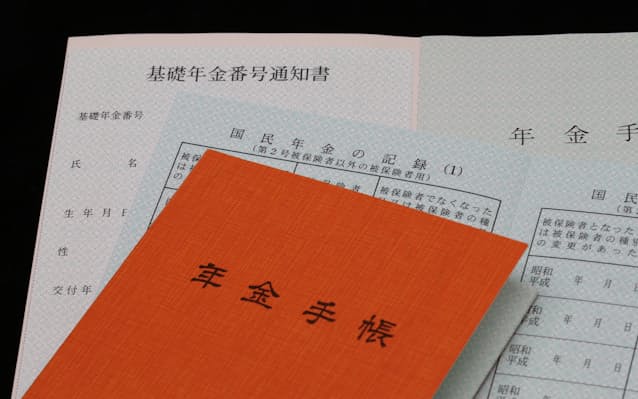 基礎年金番号通知書
基礎年金番号
氏 名
生年月日
性
交付年
国民年金の記録(1)
(第2号被保険者以外の被保険者用)
被保険者
は被保
の
険者
被保険者でなくなった
又は被保険者の種
年金手帳
年 金 手
国 民
(第
被保険者となった
は被保険者の種別
の変更があった
昭和
平成 年 月 日
昭和
平成 年 月 日
昭和
平成 年 月 日
昭和
平成 年 月